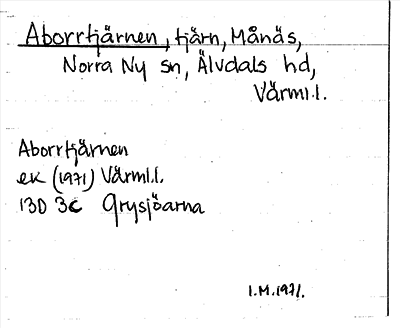 Aborrtjärnen, tjärn, Månäs,
Norra Ny sn, Älvdals hd,
Värml.l.
Aborrtjärnen
ek (1971) Värml.l.
13D 3c Grysjöarna
I.M.1971.